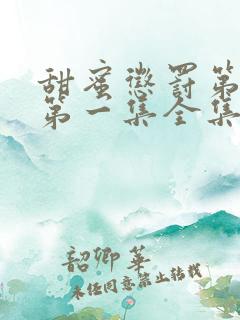 甜蜜惩罚第
第一集全集
韶卿华
未经同意禁止转载